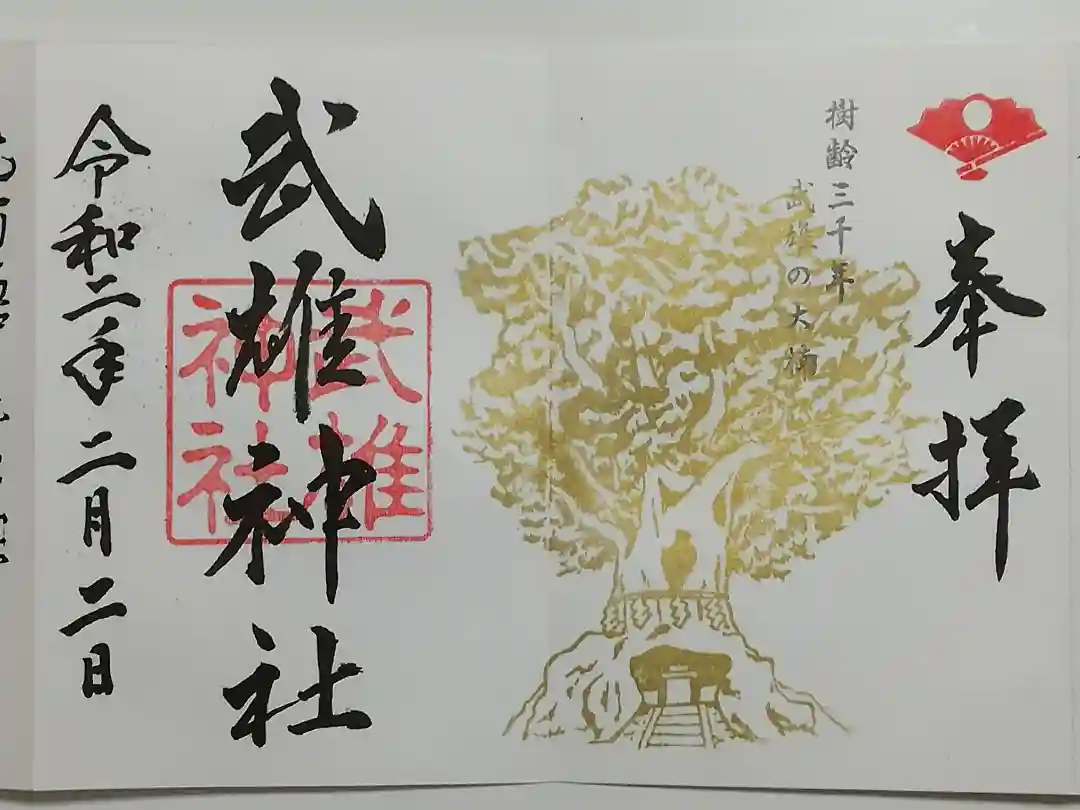 奉拝
樹齢三千年
武雄の大楠
武雄神社
武雄
神社
令和二年二月二日